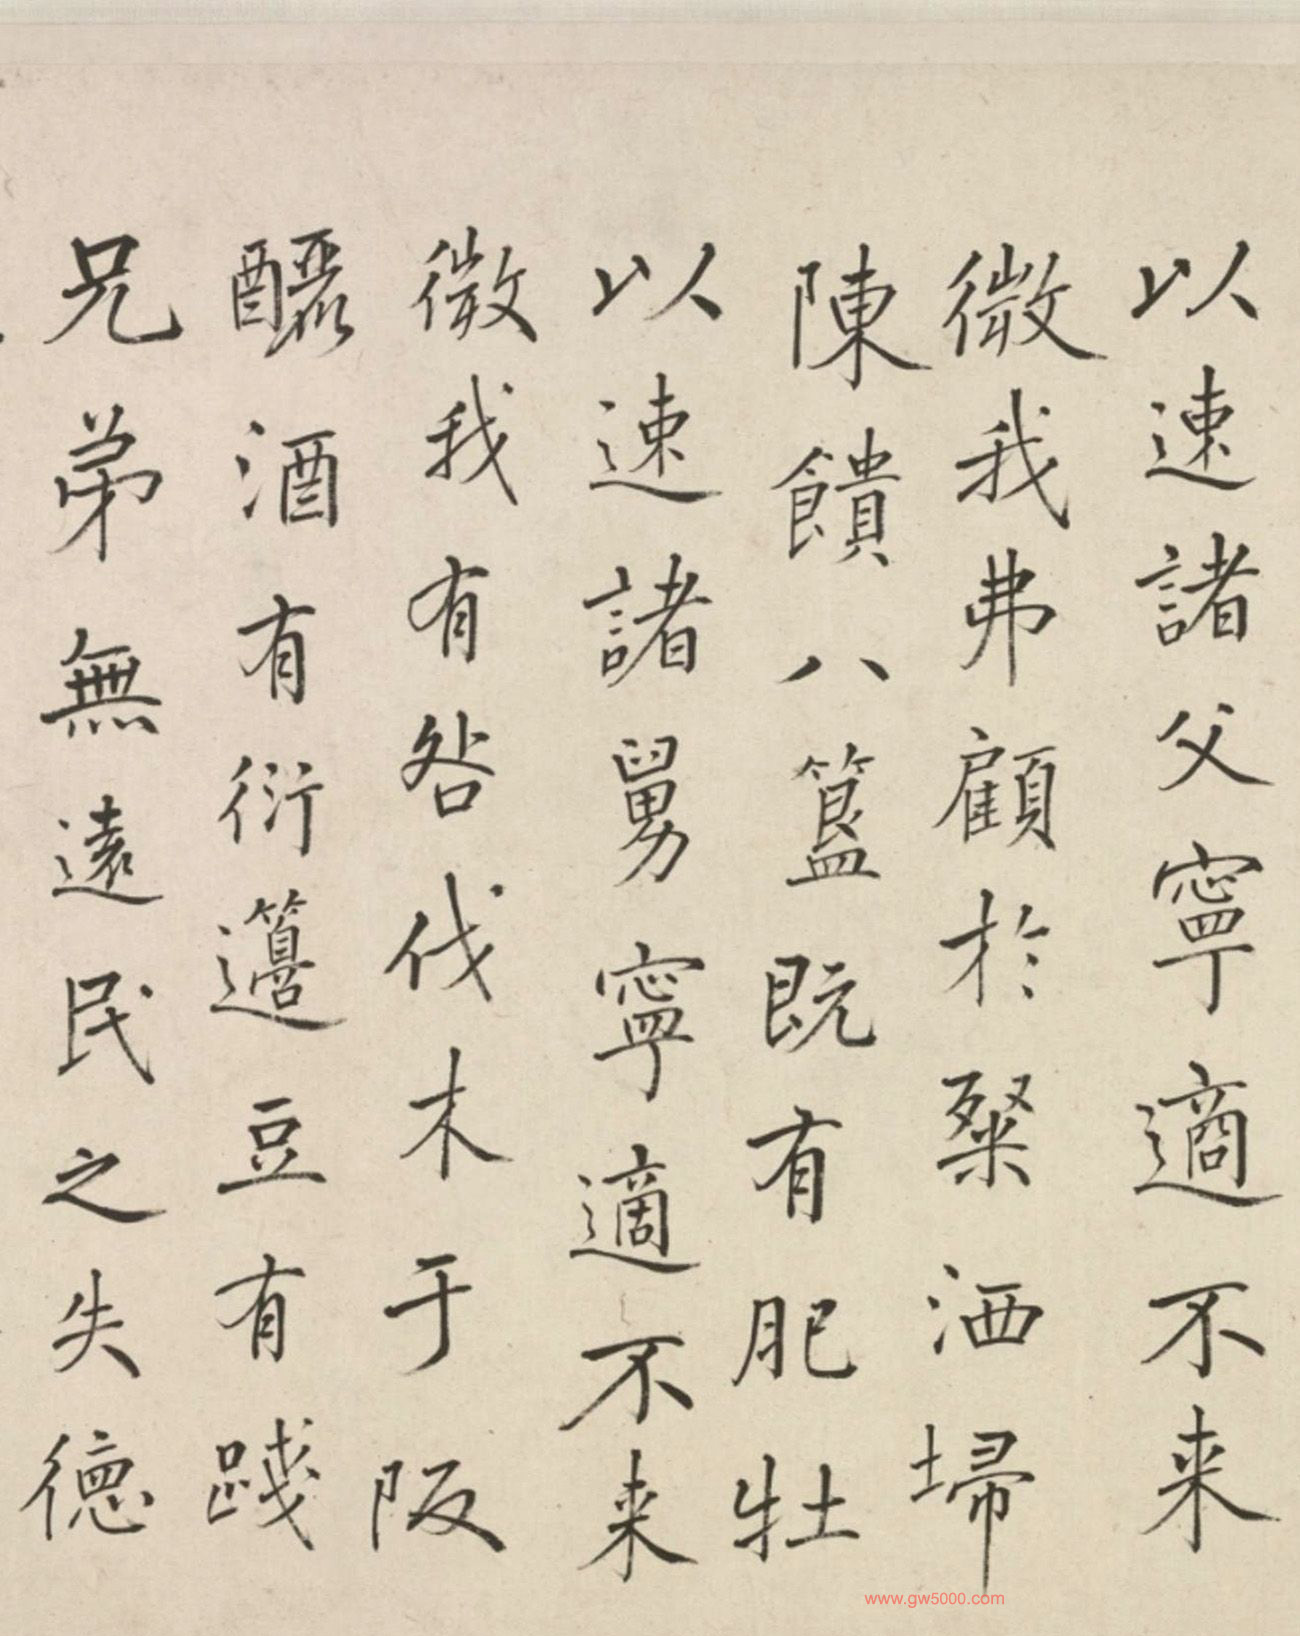 以速諸父寧適不来
微我弗顧於粲洒埽
陳饋八簋既有肥牡
以速諸舅寧適不来
微我有咎伐木于阪
釃酒有衍籩豆有踐
兄弟無遠民之失德
www.gw5000.com